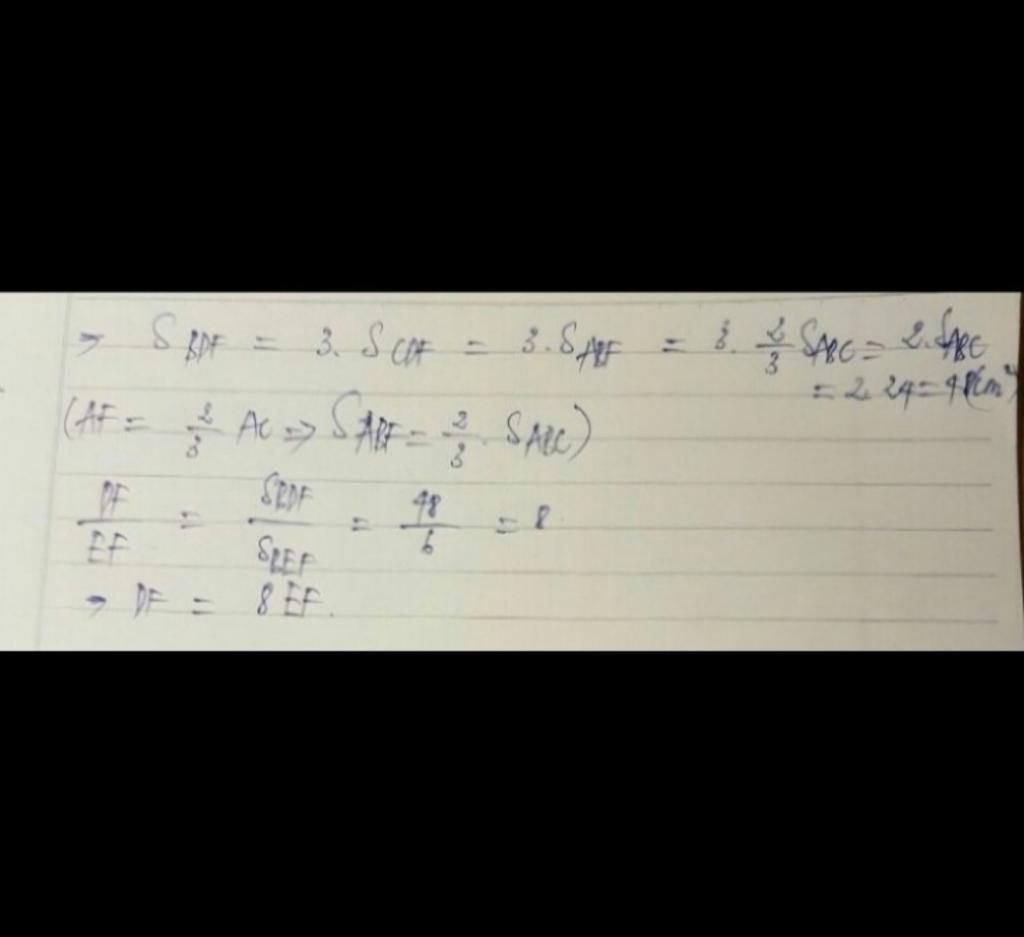 ⇒ S BDF = 3. S CDF = 3. S ABF = 3. 2/3 S ABC = 2. S ABC
= 2. 24 = 48 (cm²)
(AF = 2/3 AC ⇒ S ABF = 2/3 . S ABC)
DF/EF = S BDF/S BEF = 48/6 = 8
→ DF = 8 EF.